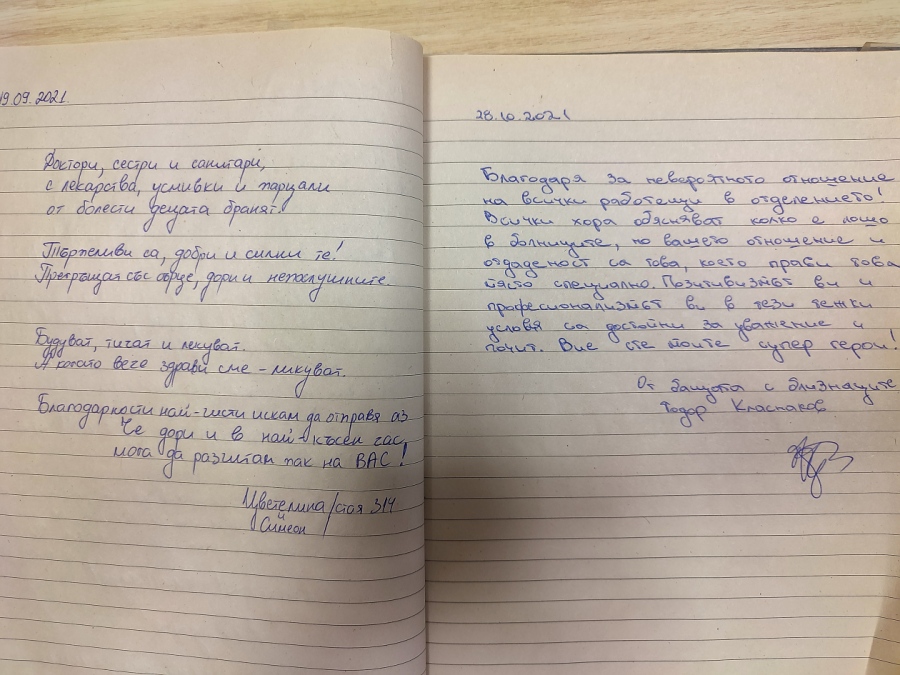 19.09.2021
Доктори, сестри и санитари,
с лекарства, усмивки и парцали
от болести децата бранят!
Търпеливи са, добри и силни те!
Прегръщат със сърце, дори и непослушните.
Будуват, тичат и лекуват.
А когато вече здрави сме - ликуват.
Благодарности най-чисти искам да отправя аз
Че дори и в най-късен час,
мога да разчитам пак на ВАС!
Цветелина/стая 314
и
Симеон
28.10.2021
Благодаря за невероятното отношение
на всички работещи в отделението!
Всички хора обясняват колко е лошо
в болниците, но вашето отношение и
отдаденост са това, което прави това
място специално. Позитивизмът ви и
професионализмът ви в тези тежки
условя са достойни за уважение и
почит. Вие сте моите супер герои!
От бащата с близнаците
Тодор